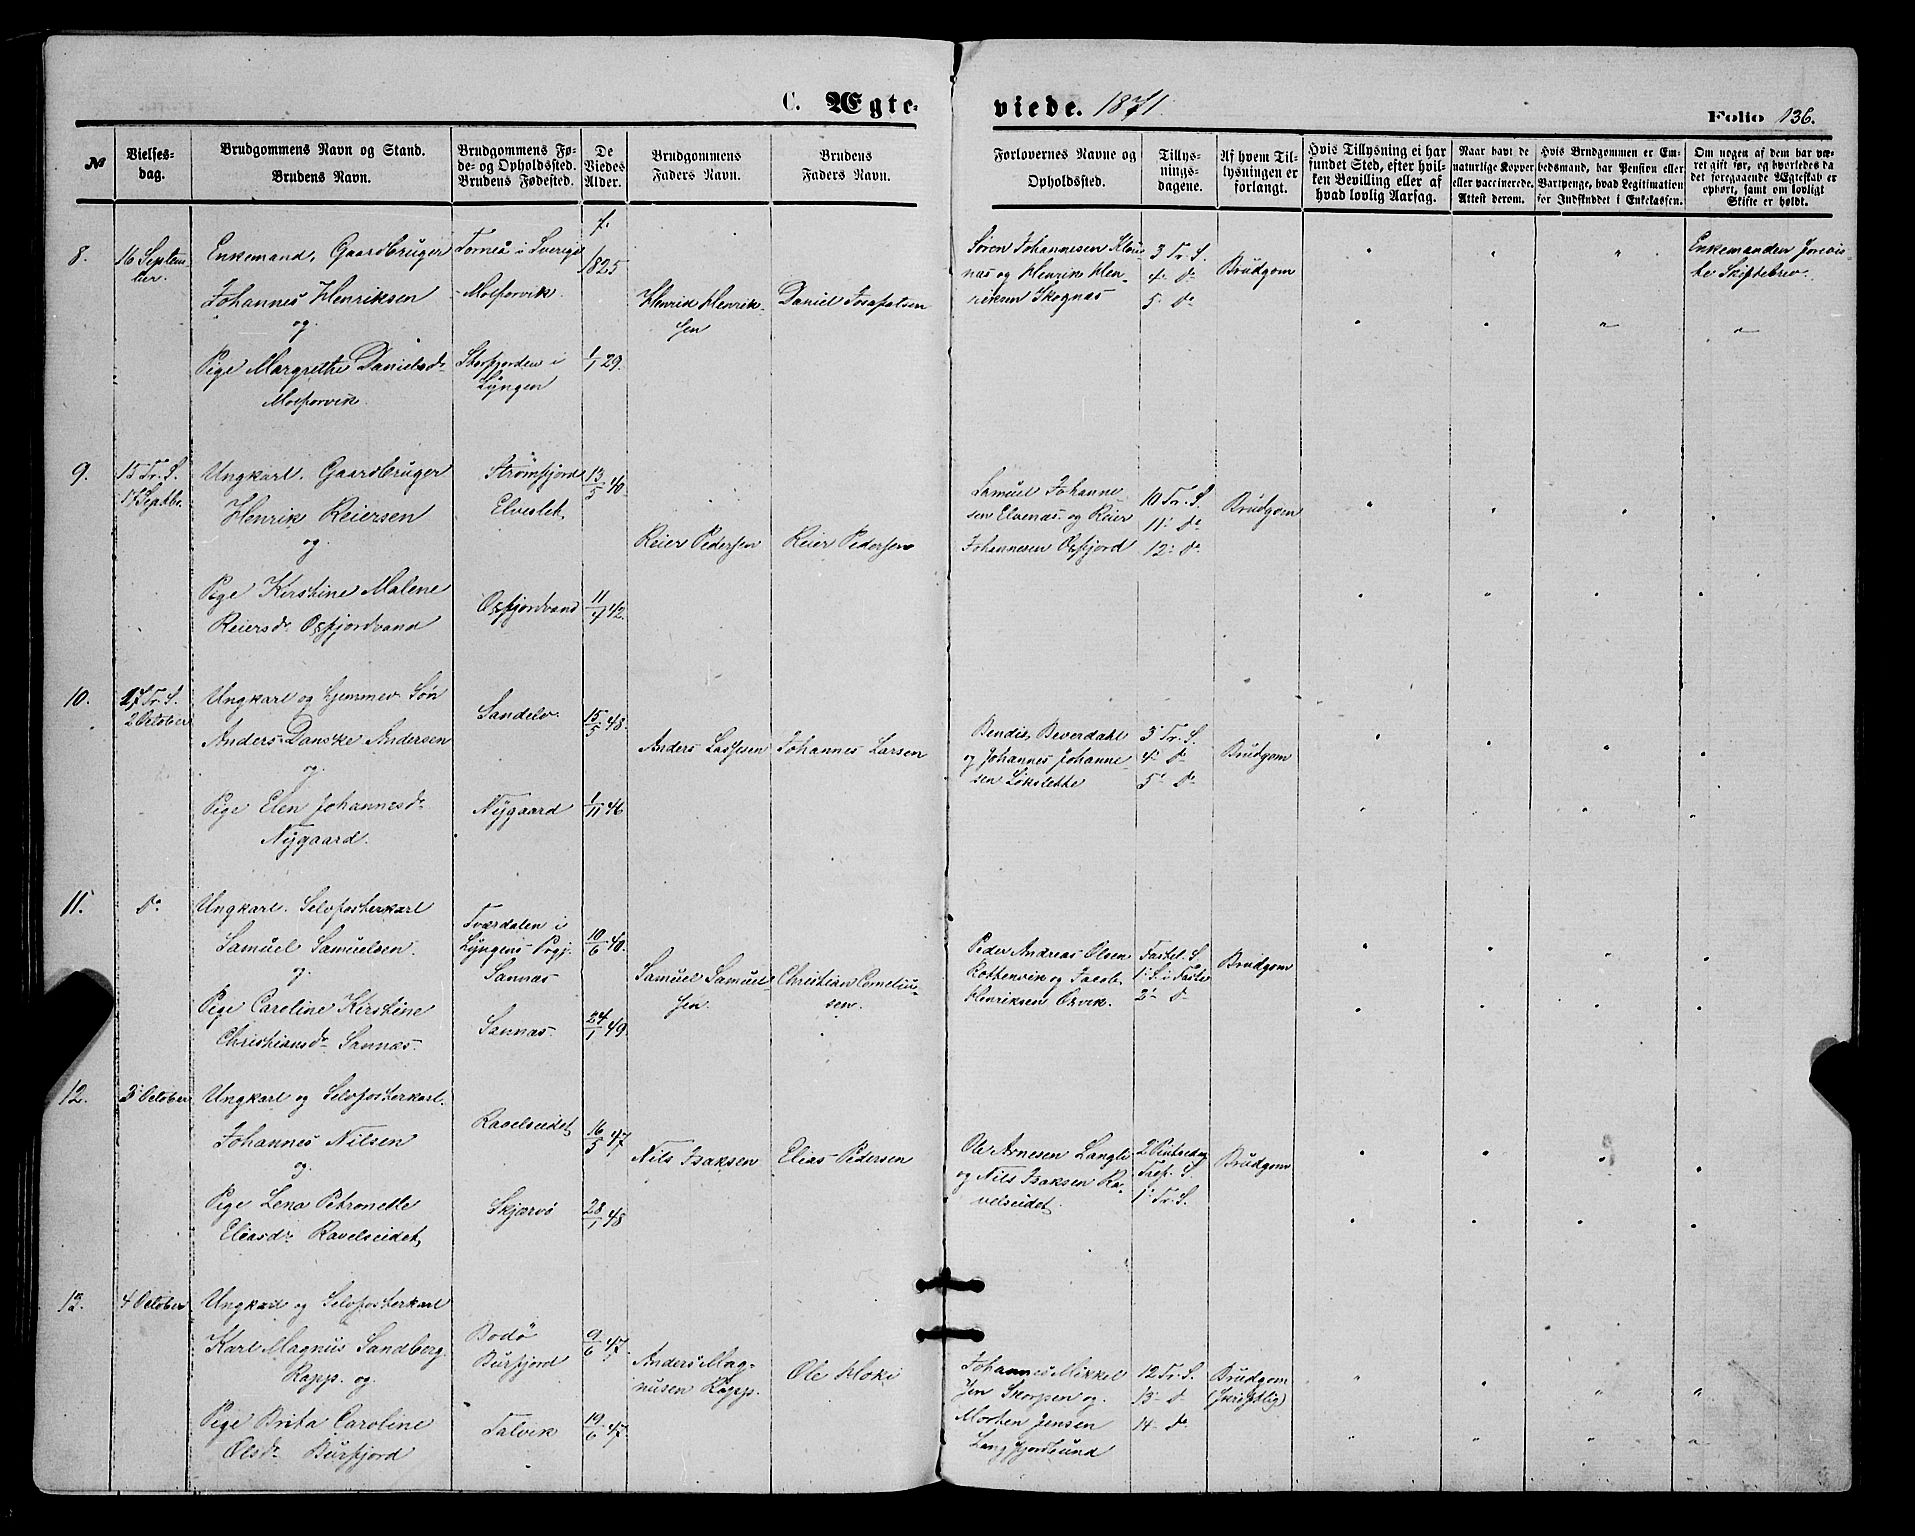 C. Ægte-
viede. 1871.
Folio 136.
№
Vielses-
dag.
Brudgommens Navn og Stand.
Brudens Navn.
Brudgommens Fø-
de- og Opholdssted.
Brudens Fødested.
De
Viedes
Alder.
Brudgommens
Faders Navn.
Brudens
Faders Navn.
Forlovernes Navne og
Opholdssted.
Tillys-
nings-
dagene.
Af hvem Til-
lysningen er
forlangt.
Hvis Tillysning ei har
fundet Sted, efter hvil-
ken Bevilling eller af
hvad lovlig Aarsag.
Naar havt de
naturlige Kopper
eller vaccinerede.
Attest derom.
Hvis Brudgommen er Em-
bedsmand, har Pension eller
Vartpenge, hvad Legitimation
for Indskuddet i Enkekassen.
Om nogen af dem har væ-
ret gift før, og hvorledes da
det foregaaende Ægteskab er
ophørt, samt om lovligt
Skifte er holdt.
8.
16 Septem-
ber.
Enkemand, Gaardbruger
Johannes Henriksen
og
Pige Margrethe Danielsdr
Molforvik.
Torneå i Sverige
- Molforvik.
Storfjorden i
Lyngen
f.
1825
1/1 29.
Henrik Henrik-
sen
Daniel Josafatsen
Søren Johannesen Klou-
nas og Henrik Hen-
riksen Skognas
3 Tr. S.
4 do
5 do
Brudgom
Enkemanden foreviis-
te Skiftebrev.
9.
15 Tr. S.
17 Septbr.
Ungkarl, Gaardbruger
Henrik Reiersen
og
Pige Kirstine Malene
Reiersdr Oxfjordvand
Strømfjord
Elveslet
Oxfjordvand
13/5 40.
11/7 42.
Reier Pedersen
Reier Pedersen
Samuel Johanne-
sen Elvenas og Reier
Johannesen Oxfjord
10 Tr. S.
11 do
12 do
Brudgom
10.
17 Tr. S.
2 October
Ungkarl og hjemmev. Søn
Anders Danske Andersen
og
Pige Elen Johannesdr
Nygaard.
Sandelv.
Nygaard
15/5 48.
1/11 46
Anders Lassesen
Johannes Larsen
Bendix Beverdahl
og Johannes Johanne-
sen Løkslette
3 Tr. S.
4 do
5 do
Brudgom
11.
do
Ungkarl. Selvfosterkarl
Samuel Samuelsen.
og
Pige Caroline Kirstine
Christiansdr Sannas.
Tværdalen i
Lyngens Prgj.
Sannas
Sannas.
10/6 40.
24/1 49.
Samuel Samuel-
sen.
Christian Corneliu-
sen.
Peder Andreas Olsen
Rottenvik og Jacob
Henriksen Oxvik.
Fastel. S.
1 S. i Faste
2 do
Brudgom
12.
3 October
Ungkarl og Selvfosterkarl.
Johannes Nilsen
og
Pige Lena Petronelle
Eliasdr Ravelseidet
Ravelseidet
Skjærvø
16/5 47
28/1 48
Nils Isaksen
Elias Pedersen
Ole Arnesen Langli
og Nils Isaksen Ra-
velseidet
2 Pintsedag
Tref. S.
1 Tr. S.
Brudgom
13.
4 October
Ungkarl og Selvfosterkarl
Karl Magnus Sandberg
Rapp. og
Pige Brita Caroline
Olsdr Burfjord
Bodø
Burfjord
Talvik
9/6 47.
19/6 47.
Anders Mag-
nusen Rapp.
Ole Hoki
Johannes Mikkel
sen Skorpen og
Morten Jensen
Langfjordsund
12 Tr. S.
13 do
14 do
Brudgom
(skriftlig)